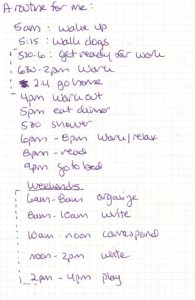 A routine for me:
5am: wake up
5:15: walk dogs
530-6: get ready for work
630-2pm work
2-4 go home
4pm work out
5pm eat dinner
530 shower
6pm-8pm work/relax
8pm-read
9pm go to bed
Weekends
6am-8am organize
8am-10am write
10am-noon correspond
noon-2pm write
2pm-4pm play